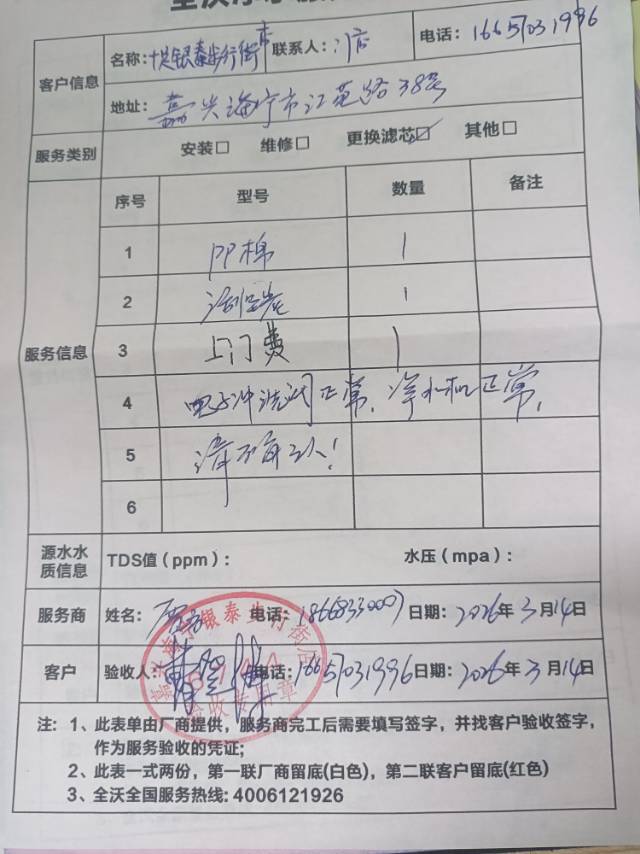 客户信息
名称: 银泰步行街
联系人: 门店
电话: 16657031996
地址: 嘉兴海宁市江苑路38号
服务类别
安装□ 维修□ 更换滤芯☑ 其他□
服务信息
序号 型号 数量 备注
1 PP棉 1
2 活性炭 1
3 上门费 1
4 电子冲洗阀正常,净水机正常,
5
6
源水水质信息
TDS值(ppm): 水压(mpa):
服务商 姓名: 电话: 日期: 2026年3月14日
客户 验收人: 电话: 16657031996 日期: 2026年3月14日
银泰步行街店
验收专用章
注: 1、此表单由厂商提供,服务商完工后需要填写签字,并找客户验收签字,
作为服务验收的凭证;
2、此表一式两份,第一联厂商留底(白色),第二联客户留底(红色)
3、全沃全国服务热线: 4006121926